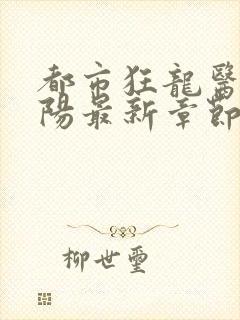 都市狂龍醫
陽最新章節
柳世璽